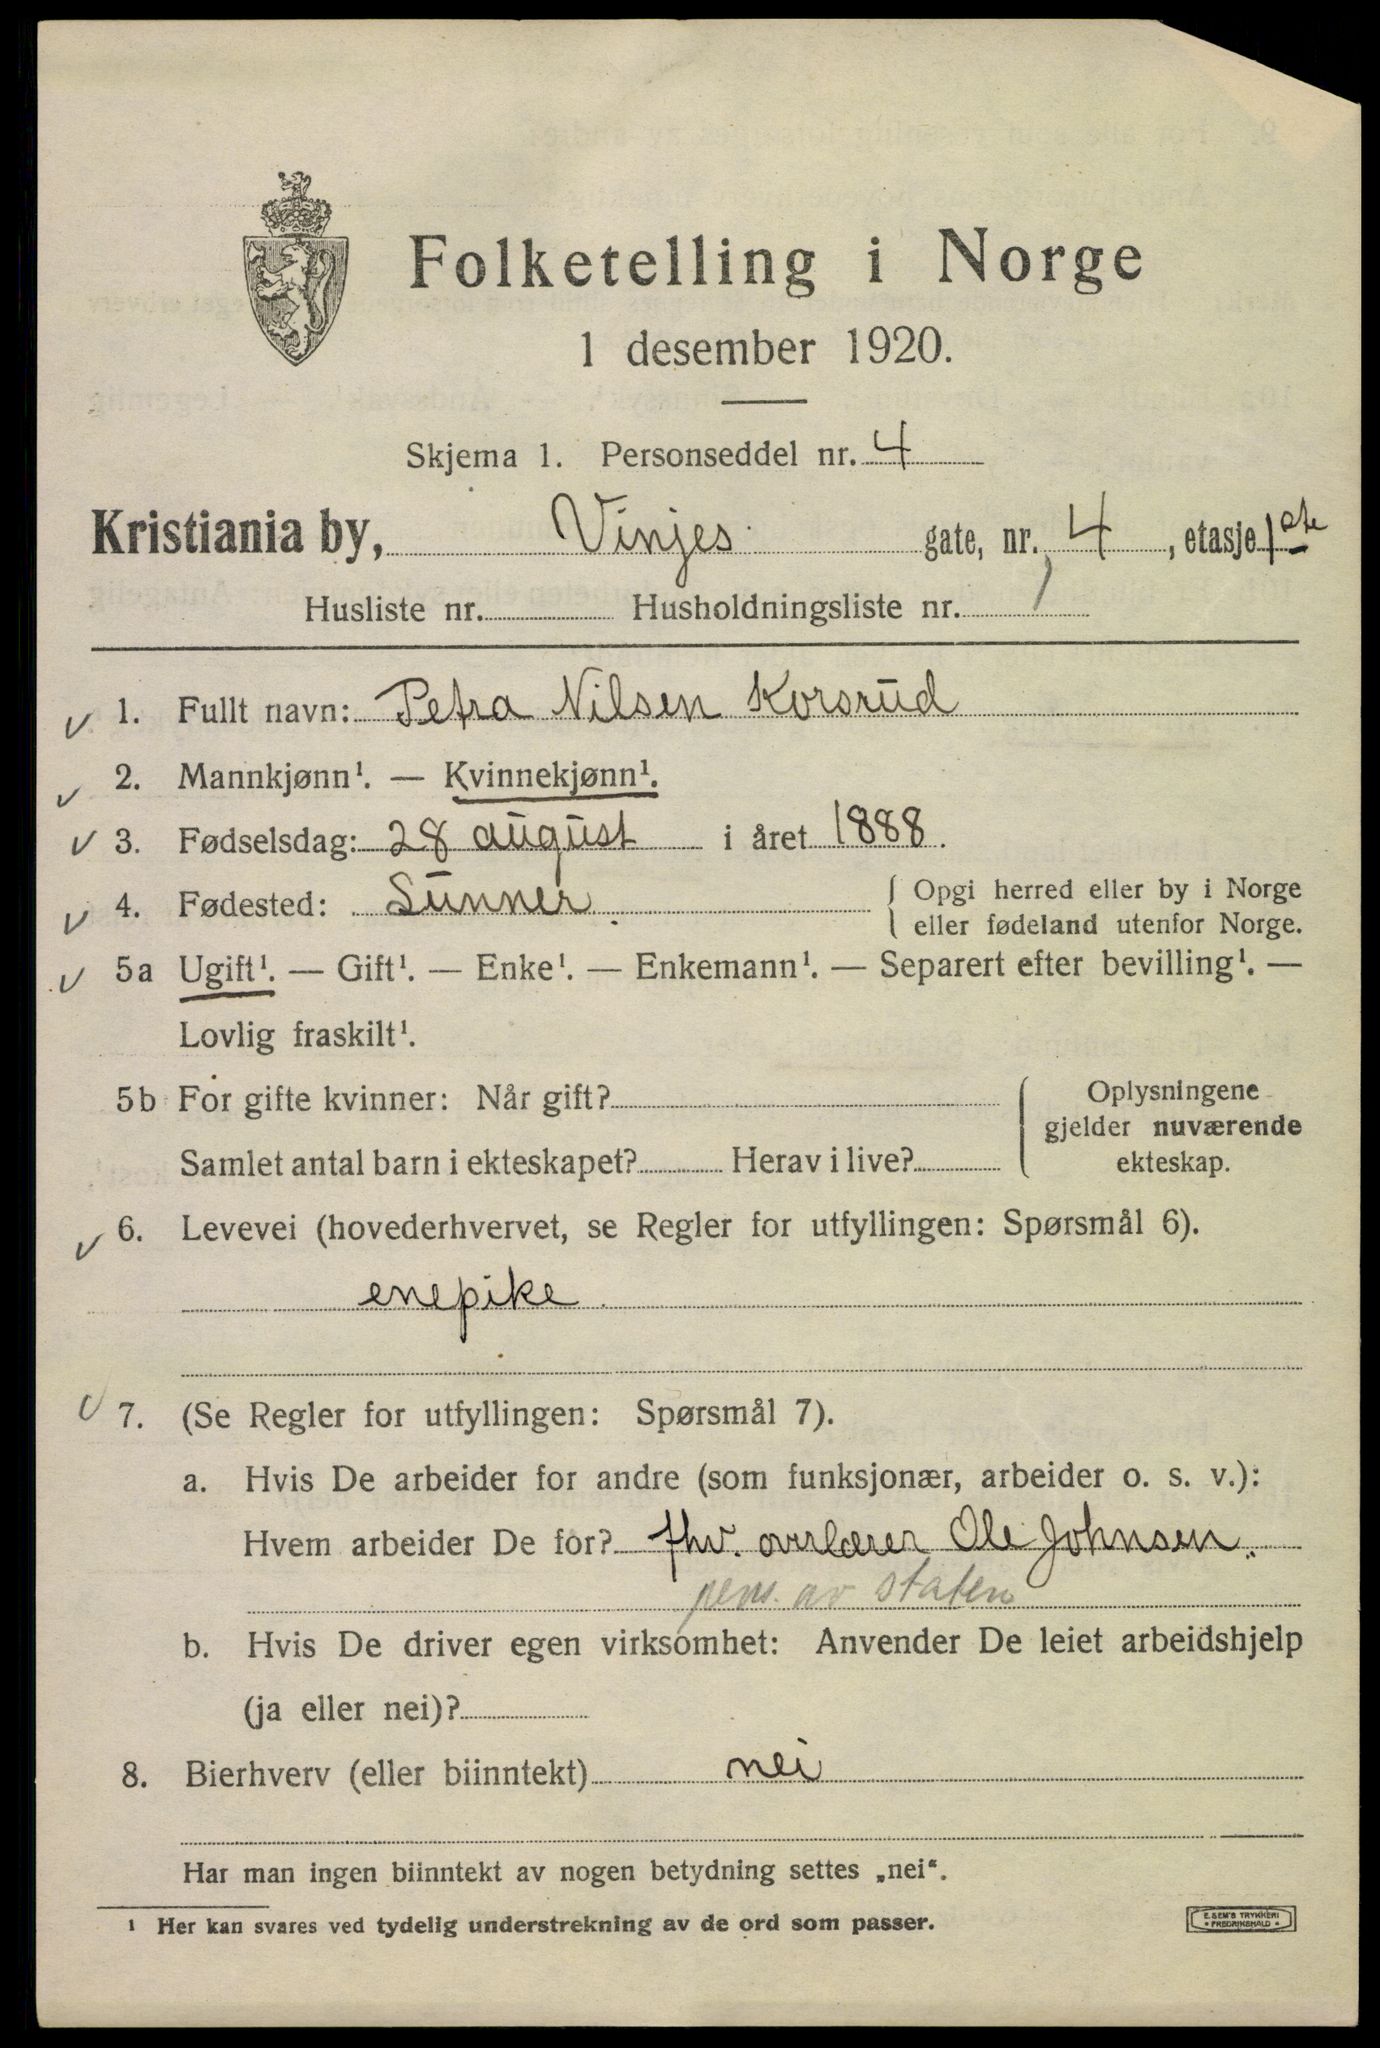 Folketelling i Norge
1 desember 1920.
Skjema 1. Personseddel nr. 4
Kristiania by, Vinjes gate, nr. 4, etasje 1ste
Husliste nr. Husholdningsliste nr. 1
1. Fullt navn: Petra Nilsen Korsrud
2. Mannkjønn¹. — Kvinnekjønn¹.
3. Fødselsdag: 28 august i året 1888.
4. Fødested: Lunner. { Opgi herred eller by i Norge
eller fødeland utenfor Norge.
5a Ugift¹. — Gift¹. — Enke¹. — Enkemann¹. — Separert efter bevilling¹. —
Lovlig fraskilt¹.
5b For gifte kvinner: Når gift? { Oplysningene
gjelder nuværende
Samlet antal barn i ekteskapet? Herav i live? ekteskap.
6. Levevei (hovederhvervet, se Regler for utfyllingen: Spørsmål 6).
enepike.
7. (Se Regler for utfyllingen: Spørsmål 7).
a. Hvis De arbeider for andre (som funksjonær, arbeider o. s. v.):
Hvem arbeider De for? fhv. overlærer Ole Johnsen.
pens. av staten
b. Hvis De driver egen virksomhet: Anvender De leiet arbeidshjelp
(ja eller nei)?
8. Bierhverv (eller biinntekt) nei
Har man ingen biinntekt av nogen betydning settes „nei“.
¹ Her kan svares ved tydelig understrekning av de ord som passer.
E. SEM'S TRYKKERI
• FREDRIKSHALD •